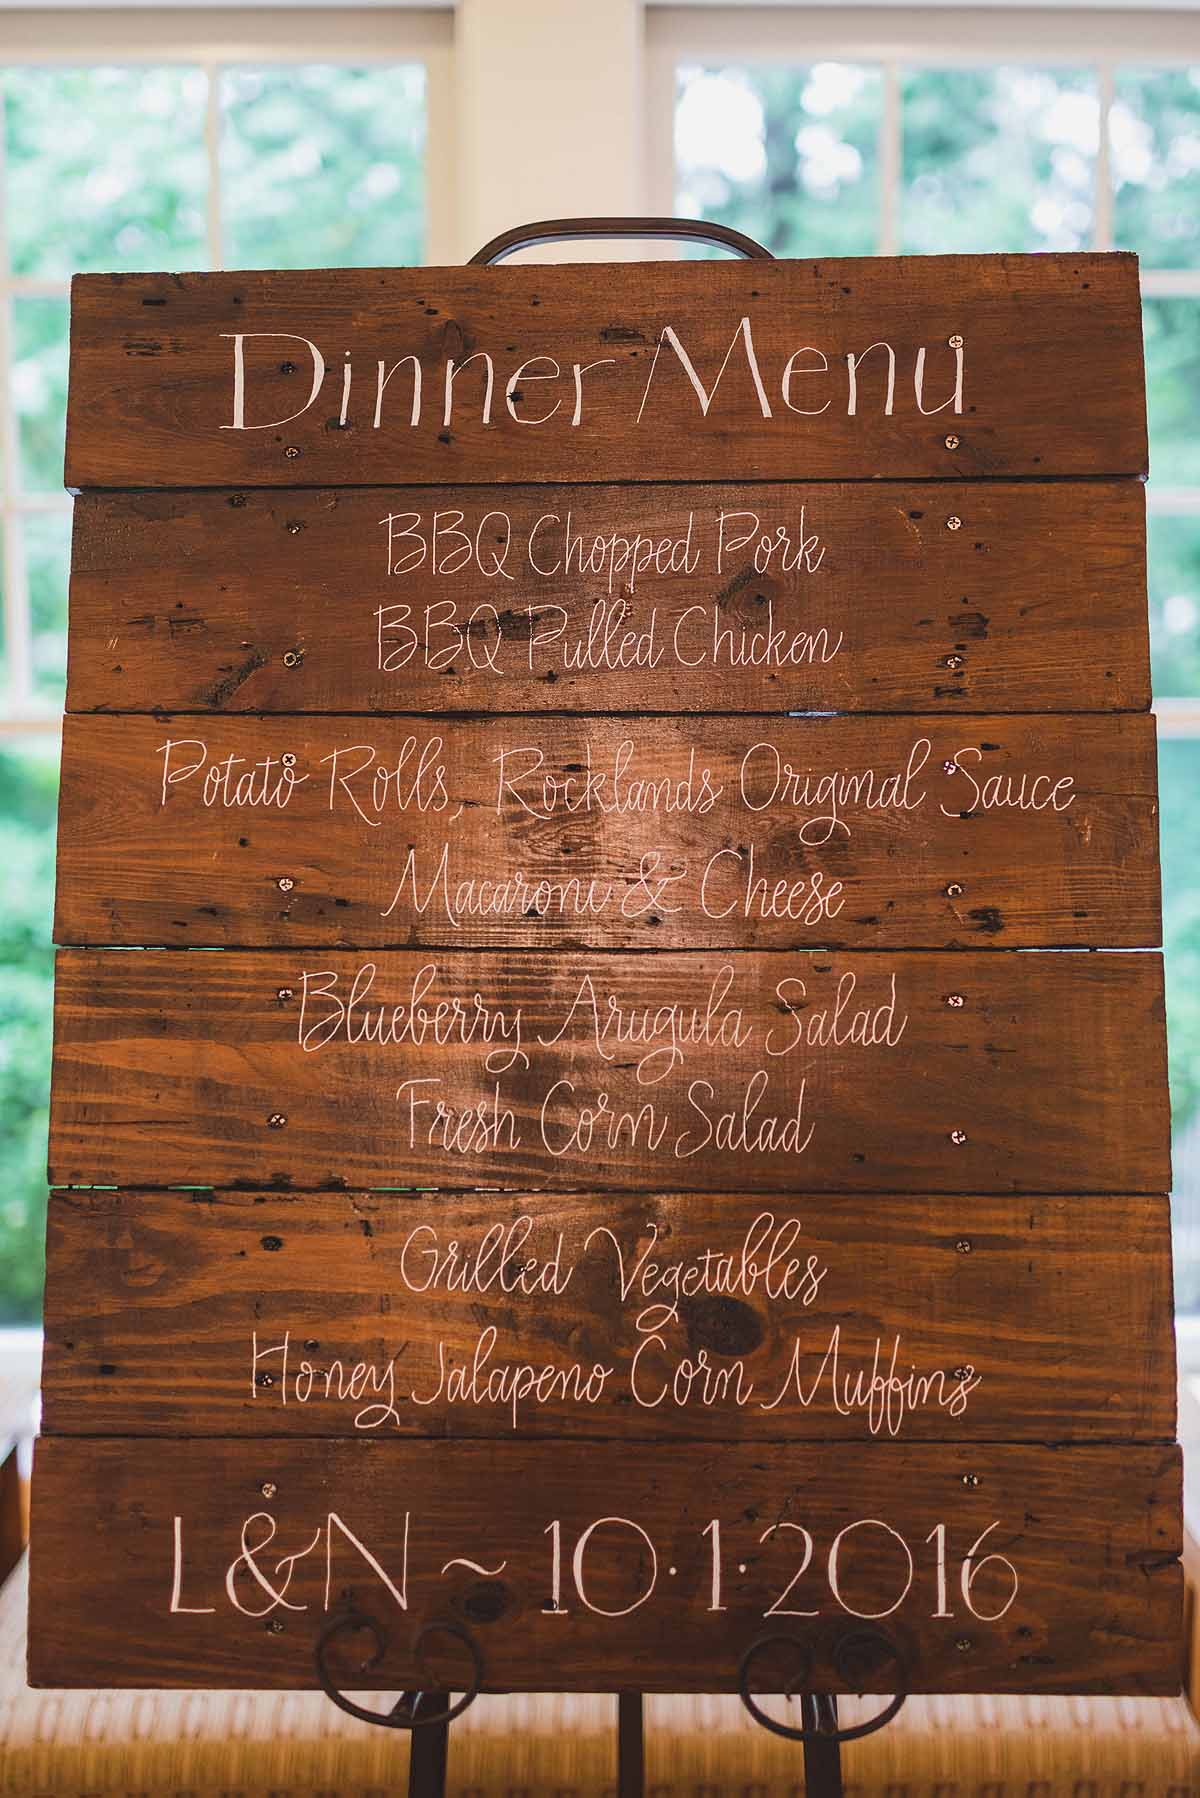 Dinner Menu
BBQ Chopped Pork
BBQ Pulled Chicken
Potato Rolls, Rocklands Original Sauce
Macaroni & Cheese
Blueberry Arugula Salad
Fresh Corn Salad
Grilled Vegetables
Honey Jalapeno Corn Muffins
L&N ~ 10·1·2016